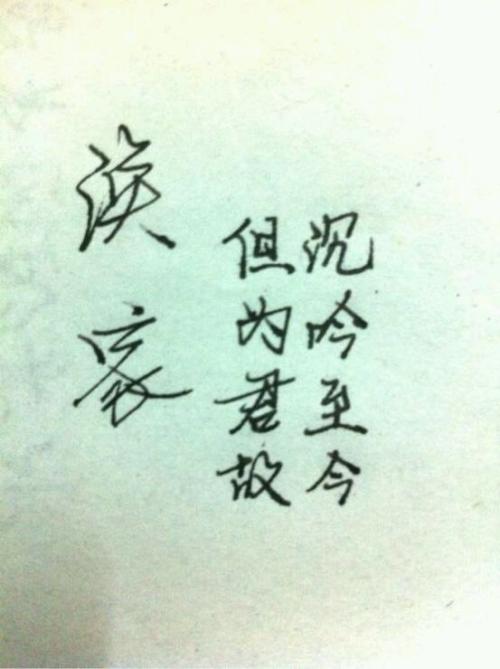 家
但为君故
沉吟至今